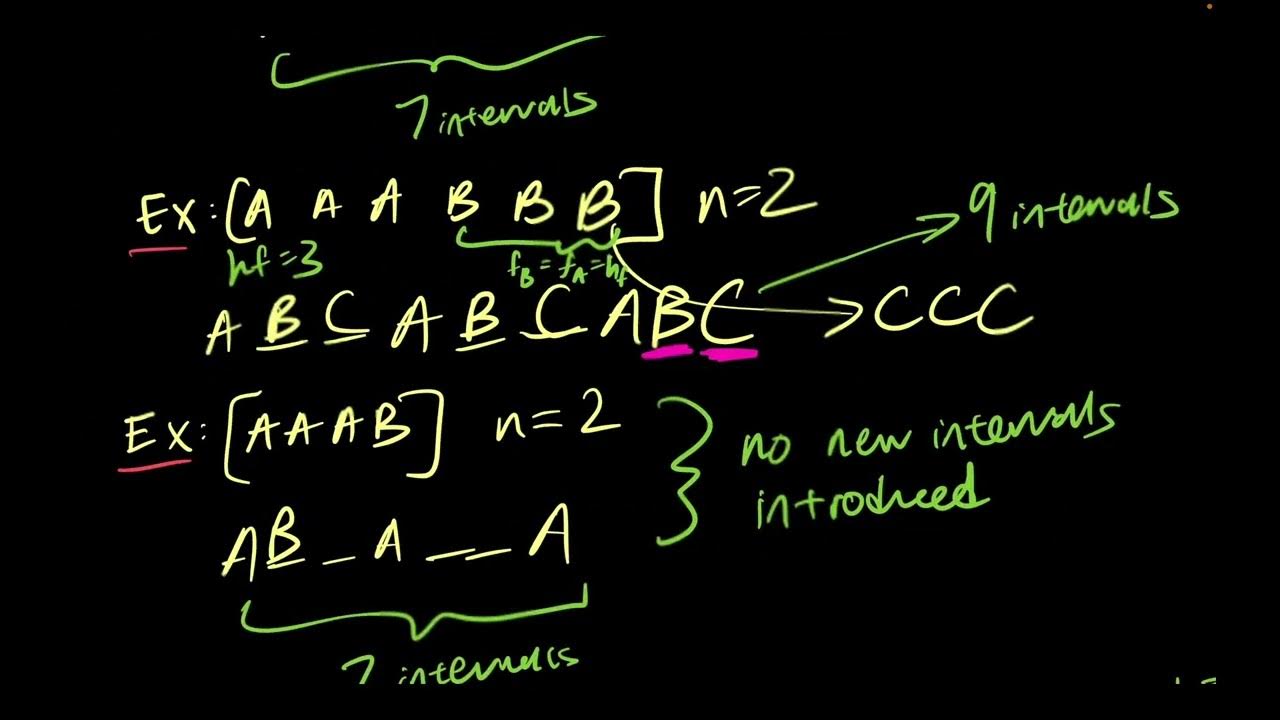 7 intervals
Ex: [A A A B B B] n=2
hf=3
f_B = f_A = hf
9 intervals
A B C A B C A B C → C C C
Ex: [A A A B] n=2
no new intervals
introduced
A B _ A _ _ A
7 intervals